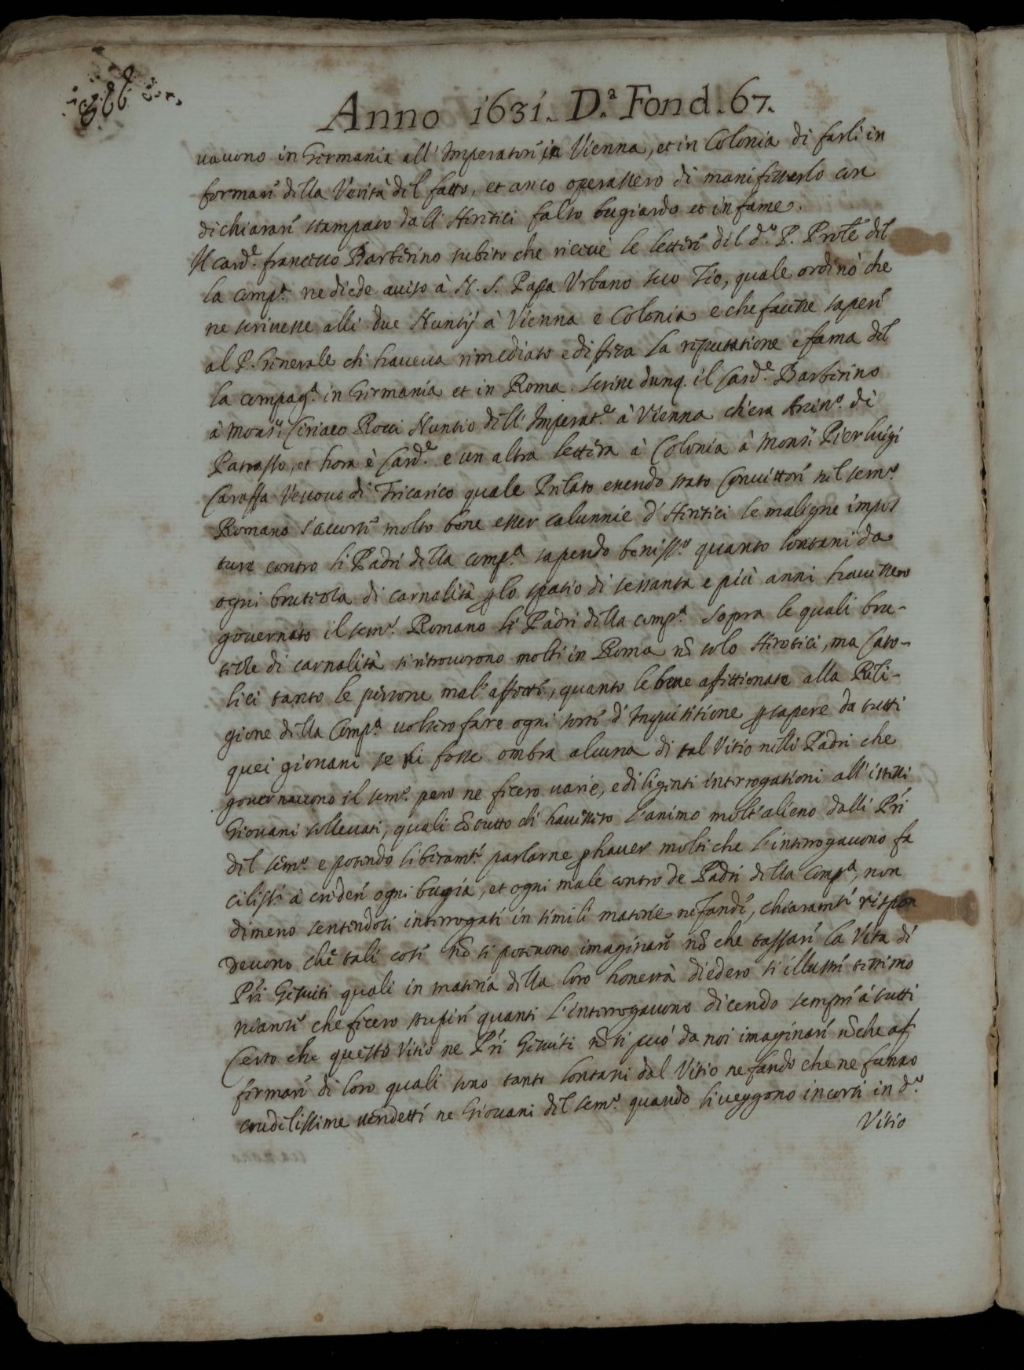 Anno 1631. D.ª Fond. 67.
vavono in Germania all' Imperatorè in Vienna, et in Colonia di farli in
formarè della Verità del fatto, et anco operassero di manifestarlo con
dichiararè stampato dall' Heretici falso bugiardo et infame.
Il card.e francesco Barberino subito che riceuè le letterè del d.o P. Prole del
la comp.ª ne diede auiso à N. S. Papa Vrbano suo Zio, quale ordinò che
ne scriuesse alli due Nuntij à Vienna e Colonia e che facesse saperè
al P. Generale ch' haueua rimediato e difesa la riputatione e fama del
la compag.ª in Germania et in Roma. Scrisse dunq. il Card.e Barberino
à Monsr. Ciriaco Rocci Nuntio dell' Imperat.e à Vienna ch'era Arciu.o di
Patrasso, et hora è Card.e e un altra lettera à Colonia à Monsr. Pier luigi
Caraffa Vescouo di Tricarico quale Prelato essendo stato Conuittorè nel sem.o
Romano s'accorsè molto bene esser calunnie d' Heretici le maligne impos
ture contro li Padri della comp.ª sapendo beniss.o quanto lontani da
ogni brutezza di carnalità p lo spatio di sessanta e più anni hauessero
gouernato il sem.o Romano li Padri della comp.ª Sopra le quali bru-
tezze di carnalità si ritrouorono molti in Roma nõ solo Heretici, ma Cato-
lici tanto le persone mal' affettè, quanto le bene affettionate alla Reli-
gione della Comp.ª uolsero fare ogni sortè d' Inquisitione p sapere da tutti
quei giouani se vi fosse ombra alcuna di tal Vitio nelli Padri che
gouernauono il sem.o però ne ficero uarie, e diligenti interrogationi all' istessi
Giouani solleuati, quali cõ tutto ch' hauessero l'animo molt' alieno dalli Pri
del sem.o e potendo liberamtè parlarne p hauer molti che l'interrogauono fa
cilissi à crederè ogni bugia, et ogni male contro de Padri della Comp.ª, non
dimeno sentendosi interrogati in simili materie nefandè, chiaramtè rispon
deuono che tali cosè nõ si poteuono imaginarè nõ che tassarè la Vita di
Pri Gesuiti quali in materia della loro honestà diedero si illustrè testimo
nianzè che ficero stupirè quanti l'interrogauono dicendo semprè à tutti
Certo che questo Vitio ne Pri Gesuiti nõ si può da noi imaginarè nõ che af
firmarè di loro quali sono tanto lontani dal Vitio nefando che ne fanno
crudelissime uendettè ne Giouani del sem.o quando li ueggono incorsi in d.o
Vitio